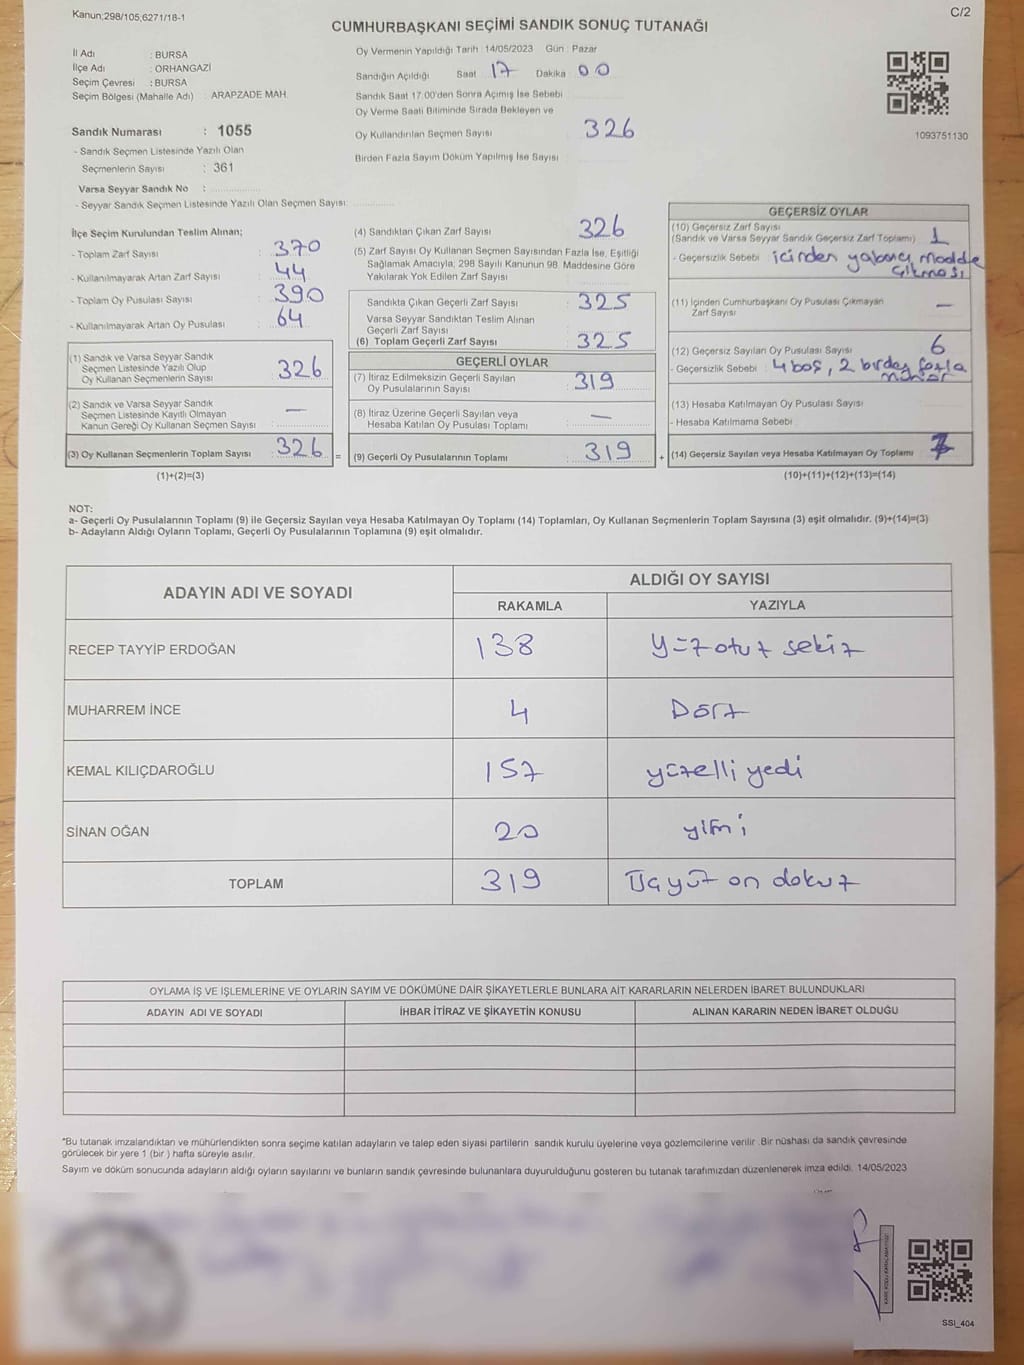 Kanun;298/105;6271/18-1
C/2
CUMHURBAŞKANI SEÇİMİ SANDIK SONUÇ TUTANAĞI
İl Adı : BURSA
İlçe Adı : ORHANGAZİ
Seçim Çevresi : BURSA
Seçim Bölgesi (Mahalle Adı) ARAPZADE MAH.
Sandık Numarası : 1055
- Sandık Seçmen Listesinde Yazılı Olan
Seçmenlerin Sayısı : 361
Varsa Seyyar Sandık No :
- Seyyar Sandık Seçmen Listesinde Yazılı Olan Seçmen Sayısı:
Oy Vermenin Yapıldığı Tarih :14/05/2023 Gün : Pazar
Sandığın Açıldığı Saat 17 Dakika 00
Sandık Saat 17:00'den Sonra Açımış İse Sebebi
Oy Verme Saati Bitiminde Sırada Bekleyen ve
Oy Kullandırılan Seçmen Sayısı 326
Birden Fazla Sayım Döküm Yapılmış İse Sayısı
1093751130
İlçe Seçim Kurulundan Teslim Alınan;
- Toplam Zarf Sayısı : 370
- Kullanılmayarak Artan Zarf Sayısı : 44
- Toplam Oy Pusulası Sayısı : 390
- Kullanılmayarak Artan Oy Pusulası : 64
(1) Sandık ve Varsa Seyyar Sandık
Seçmen Listesinde Yazılı Olup
Oy Kullanan Seçmenlerin Sayısı : 326
(2) Sandık ve Varsa Seyyar Sandık
Seçmen Listesinde Kayıtlı Olmayan
Kanun Gereği Oy Kullanan Seçmen Sayısı : —
(3) Oy Kullanan Seçmenlerin Toplam Sayısı : 326 =
(1)+(2)=(3)
(4) Sandıktan Çıkan Zarf Sayısı 326
(5) Zarf Sayısı Oy Kullanan Seçmen Sayısından Fazla İse, Eşitliği
Sağlamak Amacıyla, 298 Sayılı Kanunun 98. Maddesine Göre
Yakılarak Yok Edilen Zarf Sayısı
Sandıkta Çıkan Geçerli Zarf Sayısı : 325
Varsa Seyyar Sandıktan Teslim Alınan
Geçerli Zarf Sayısı
(6) Toplam Geçerli Zarf Sayısı : 325
GEÇERLİ OYLAR
(7) İtiraz Edilmeksizin Geçerli Sayılan
Oy Pusulalarının Sayısı : 319
(8) İtiraz Üzerine Geçerli Sayılan veya
Hesaba Katılan Oy Pusulası Toplamı : —
(9) Geçerli Oy Pusulalarının Toplamı : 319 +
GEÇERSİZ OYLAR
(10) Geçersiz Zarf Sayısı
(Sandık ve Varsa Seyyar Sandık Geçersiz Zarf Toplamı) 1
- Geçersizlik Sebebi : içinden yabancı madde
çıkması
(11) İçinden Cumhurbaşkanı Oy Pusulası Çıkmayan
Zarf Sayısı —
(12) Geçersiz Sayılan Oy Pusulası Sayısı 6
- Geçersizlik Sebebi : 4 boş, 2 birden fazla
mühür
(13) Hesaba Katılmayan Oy Pusulası Sayısı
- Hesaba Katılmama Sebebi
(14) Geçersiz Sayılan veya Hesaba Katılmayan Oy Toplamı 7
(10)+(11)+(12)+(13)=(14)
NOT:
a- Geçerli Oy Pusulalarının Toplamı (9) ile Geçersiz Sayılan veya Hesaba Katılmayan Oy Toplamı (14) Toplamları, Oy Kullanan Seçmenlerin Toplam Sayısına (3) eşit olmalıdır. (9)+(14)=(3)
b- Adayların Aldığı Oyların Toplamı, Geçerli Oy Pusulalarının Toplamına (9) eşit olmalıdır.
ADAYIN ADI VE SOYADI ALDIĞI OY SAYISI
RAKAMLA YAZIYLA
RECEP TAYYİP ERDOĞAN 138 yüz otuz sekiz
MUHARREM İNCE 4 Dört
KEMAL KILIÇDAROĞLU 157 yüzelli yedi
SİNAN OĞAN 20 yirmi
TOPLAM 319 Üçyüz on dokuz
OYLAMA İŞ VE İŞLEMLERİNE VE OYLARIN SAYIM VE DÖKÜMÜNE DAİR ŞİKAYETLERLE BUNLARA AİT KARARLARIN NELERDEN İBARET BULUNDUKLARI
ADAYIN ADI VE SOYADI İHBAR İTİRAZ VE ŞİKAYETİN KONUSU ALINAN KARARIN NEDEN İBARET OLDUĞU
*Bu tutanak imzalandıktan ve mühürlendikten sonra seçime katılan adayların ve talep eden siyasi partilerin sandık kurulu üyelerine veya gözlemcilerine verilir .Bir nüshası da sandık çevresinde
görülecek bir yere 1 (bir ) hafta süreyle asılır.
Sayım ve döküm sonucunda adayların aldığı oyların sayılarını ve bunların sandık çevresinde bulunanlara duyurulduğunu gösteren bu tutanak tarafımızdan düzenlenerek imza edildi. 14/05/2023
SSI_404